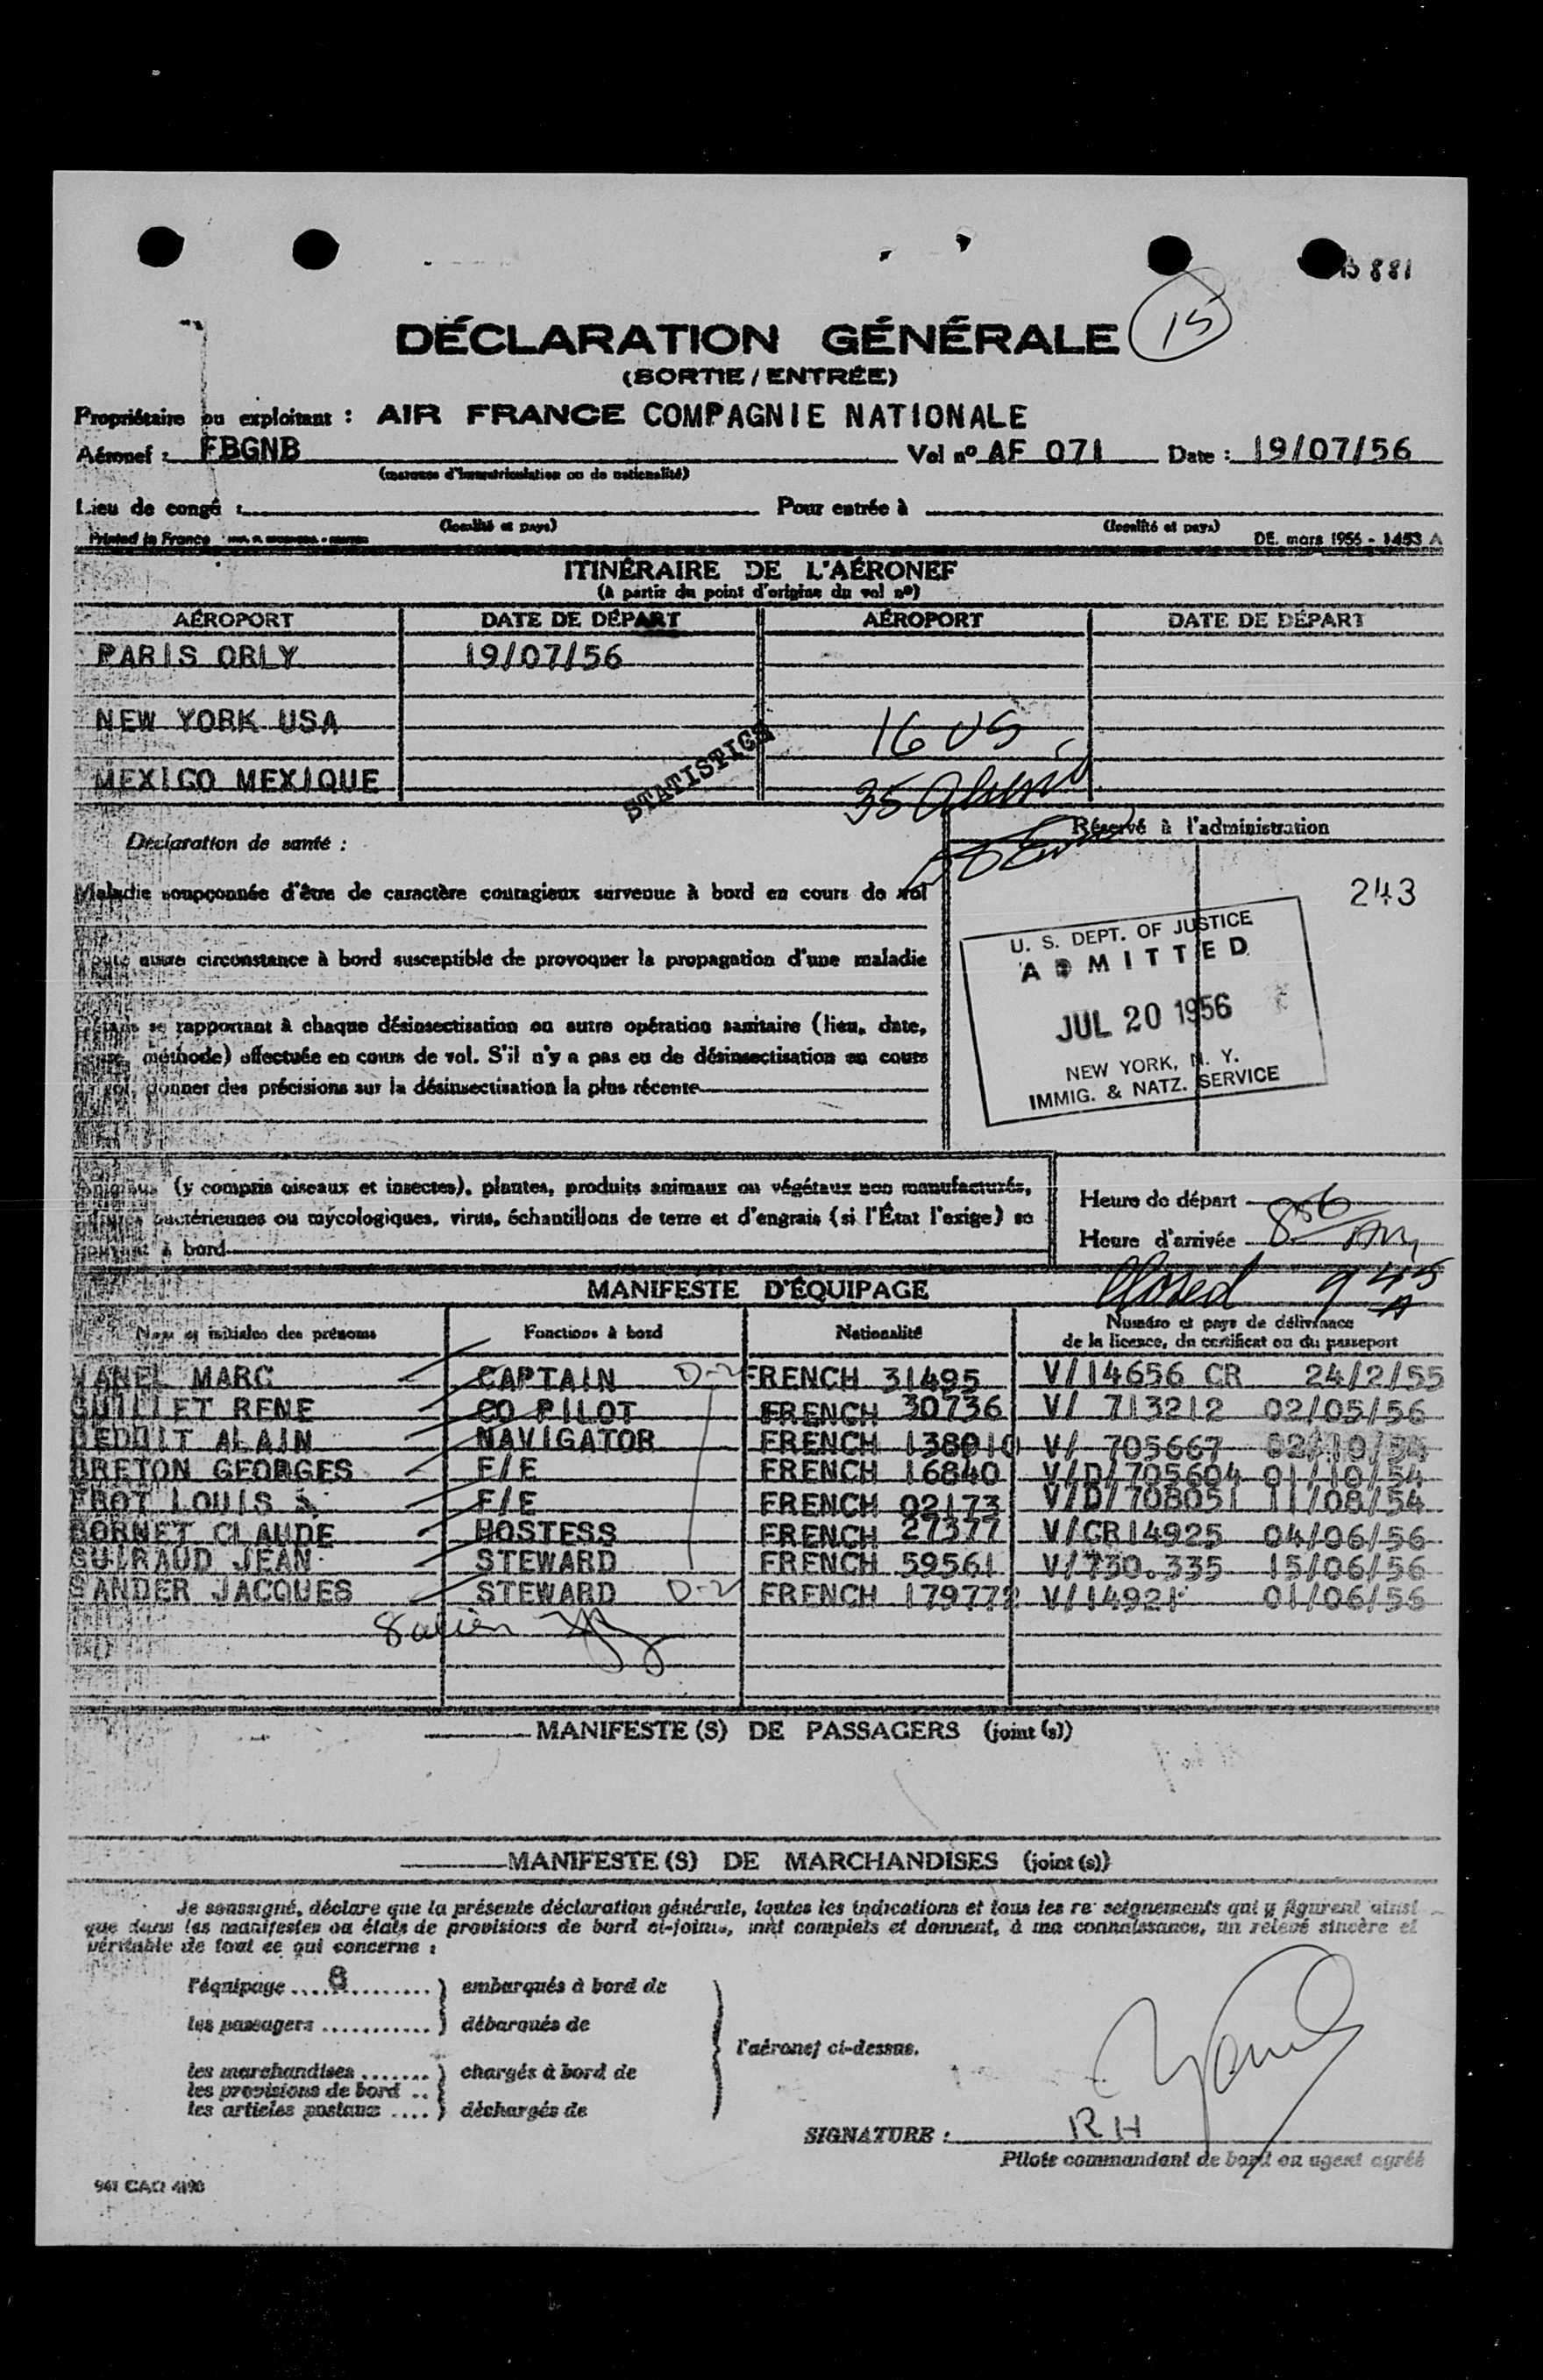 B 881
DÉCLARATION GÉNÉRALE 15
(SORTIE / ENTRÉE)
Propriétaire ou exploitant : AIR FRANCE COMPAGNIE NATIONALE
Aéronef : FBGNB Vol nº AF 071 Date : 19/07/56
(marques d'immatriculation ou de nationalité)
Lieu de congé : Pour entrée à
(localité et pays) (localité et pays)
Printed in France DE. mars 1956 - 1453 A
ITINÉRAIRE DE L'AÉRONEF
(à partir du point d'origine du vol nº)
AÉROPORT DATE DE DÉPART AÉROPORT DATE DE DÉPART
PARIS ORLY 19/07/56
NEW YORK USA 16 US
STATISTICS
MEXICO MEXIQUE 35 Aliens
Réservé à l'administration
Déclaration de santé :
243
Maladie soupçonnée d'être de caractère contagieux survenue à bord en cours de vol
U. S. DEPT. OF JUSTICE
ADMITTED
JUL 20 1956
NEW YORK, N. Y.
IMMIG. & NATZ. SERVICE
Toute autre circonstance à bord susceptible de provoquer la propagation d'une maladie
Détails se rapportant à chaque désinsectisation ou autre opération sanitaire (lieu, date,
heure, méthode) effectuée en cours de vol. S'il n'y a pas eu de désinsectisation en cours
de vol, donner des précisions sur la désinsectisation la plus récente
Animaux (y compris oiseaux et insectes), plantes, produits animaux ou végétaux non manufacturés,
bactériennes ou mycologiques, virus, échantillons de terre et d'engrais (si l'État l'exige) se
trouvant à bord
Heure de départ
Heure d'arrivée 856 AM
MANIFESTE D'ÉQUIPAGE Closed 945 A
Nom et initiales des prénoms Fonctions à bord Nationalité Numéro et pays de délivrance
de la licence, du certificat ou du passeport
VANEL MARC CAPTAIN D-2 FRENCH 31495 V/14656 CR 24/2/55
GUILLET RENE CO PILOT FRENCH 30736 V/ 713212 02/05/56
DEDUIT ALAIN NAVIGATOR FRENCH 138010 V/ 705667 02/10/54
BRETON GEORGES F/E FRENCH 16840 V/D/705604 01/10/54
FROT LOUIS F/E FRENCH 02173 V/D/708051 11/08/54
BORNET CLAUDE HOSTESS FRENCH 27377 V/CR14925 04/06/56
GUIRAUD JEAN STEWARD FRENCH 59561 V/730.335 15/06/56
SANDER JACQUES STEWARD D-2 FRENCH 179772 V/14921 01/06/56
MANIFESTE (S) DE PASSAGERS (joint (s))
MANIFESTE (S) DE MARCHANDISES (joint (s))
Je soussigné, déclare que la présente déclaration générale, toutes les indications et tous les re seignements qui y figurent ainsi
que dans les manifestes ou états de provisions de bord ci-joints, sont complets et donnent, à ma connaissance, un relevé sincère et
véritable de tout ce qui concerne :
l'équipage .... 8 .......... } embarqués à bord de
les passagers ........... } débarqués de
l'aéronef ci-dessus.
les marchandises ....... } chargés à bord de
les provisions de bord .. }
les articles postaux .... } déchargés de
SIGNATURE : RH
Pilote commandant de bord ou agent agréé